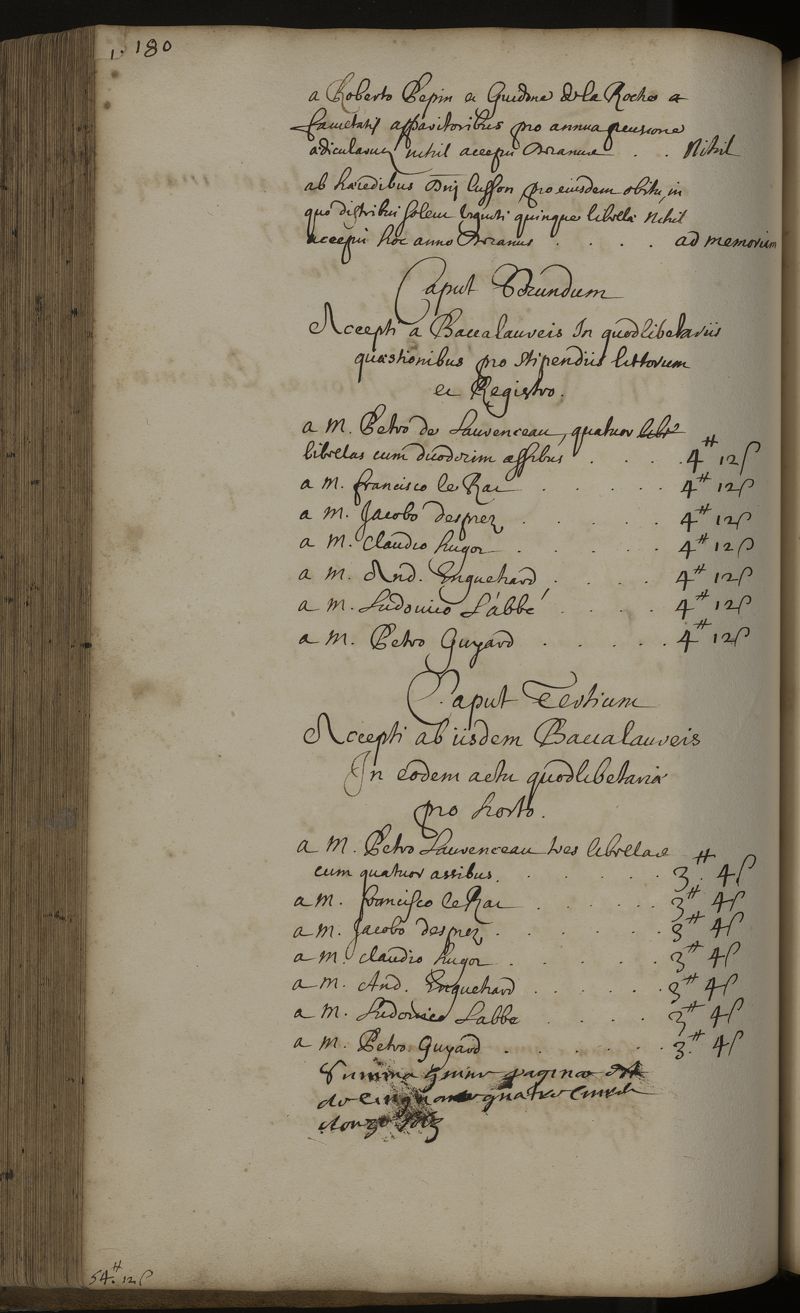 1. 180
a Roberto Pepin et Guidone de la Roche a
facultatis apparitoribus pro annua pensione
nihil accepit Decanus . . Nihil
ab haeredibus Dnj Lusson, pro eiusdem obitu, in
quo distribui solent viginti quinque librae Nihil
accepit hoc anno Decanus . . . . ad memoriam
Caput Secundum
Accepti a Baccalaureis In quodlibetariis
quaestionibus pro stipendiis
et Registro.
a M. Petro de Laurenceau, quatuor libr
librellas cum duodecim assibus . . . . 4# 12 ſ
a M. francisco le Rat . . . . . 4# 12 ſ
a M. Jacobo desprez . . . . . 4# 12 ſ
a M. Claudio hugot . . . . . 4# 12 ſ
a M. And. Enguehard . . . . 4# 12 ſ
a M. Ludovico L'abbé . . . . 4# 12 ſ
a M. Petro Guyard . . . . . 4# 12 ſ
Caput Tertium
Accepti ab iisdem Baccalaureis
In eodem actu quodlibetario
pro horto.
a M. Petro Laurenceau tres librellae
cum quatuor assibus . . . . . . 3# 4 ſ
a M. francisco le Rat . . . . . 3# 4 ſ
a M. Jacobo desprez . . . . . . 3# 4 ſ
a M. claudio hugot . . . . . 3# 4 ſ
a M. And. Enguehard . . . . . 3# 4 ſ
a M. Ludovico Labbe . . . . 3# 4 ſ
a M. Petro Guyard . . . . . . 3# 4 ſ
Summa huius paginae est
de cinquante quatre
douze
54# 12 ſ